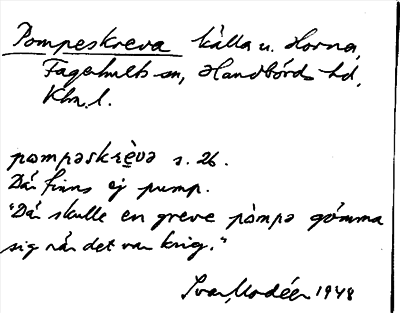 Pompeskreva källa u. Horna,
Fagerhults sn, Handbörds hd,
Klm. l.
pɷmpəskrèvə s. 26.
Där finns ej pump.
"Där skulle en greve pòmpə gömma
sig när det var krig."
Ivar Modéer 1948